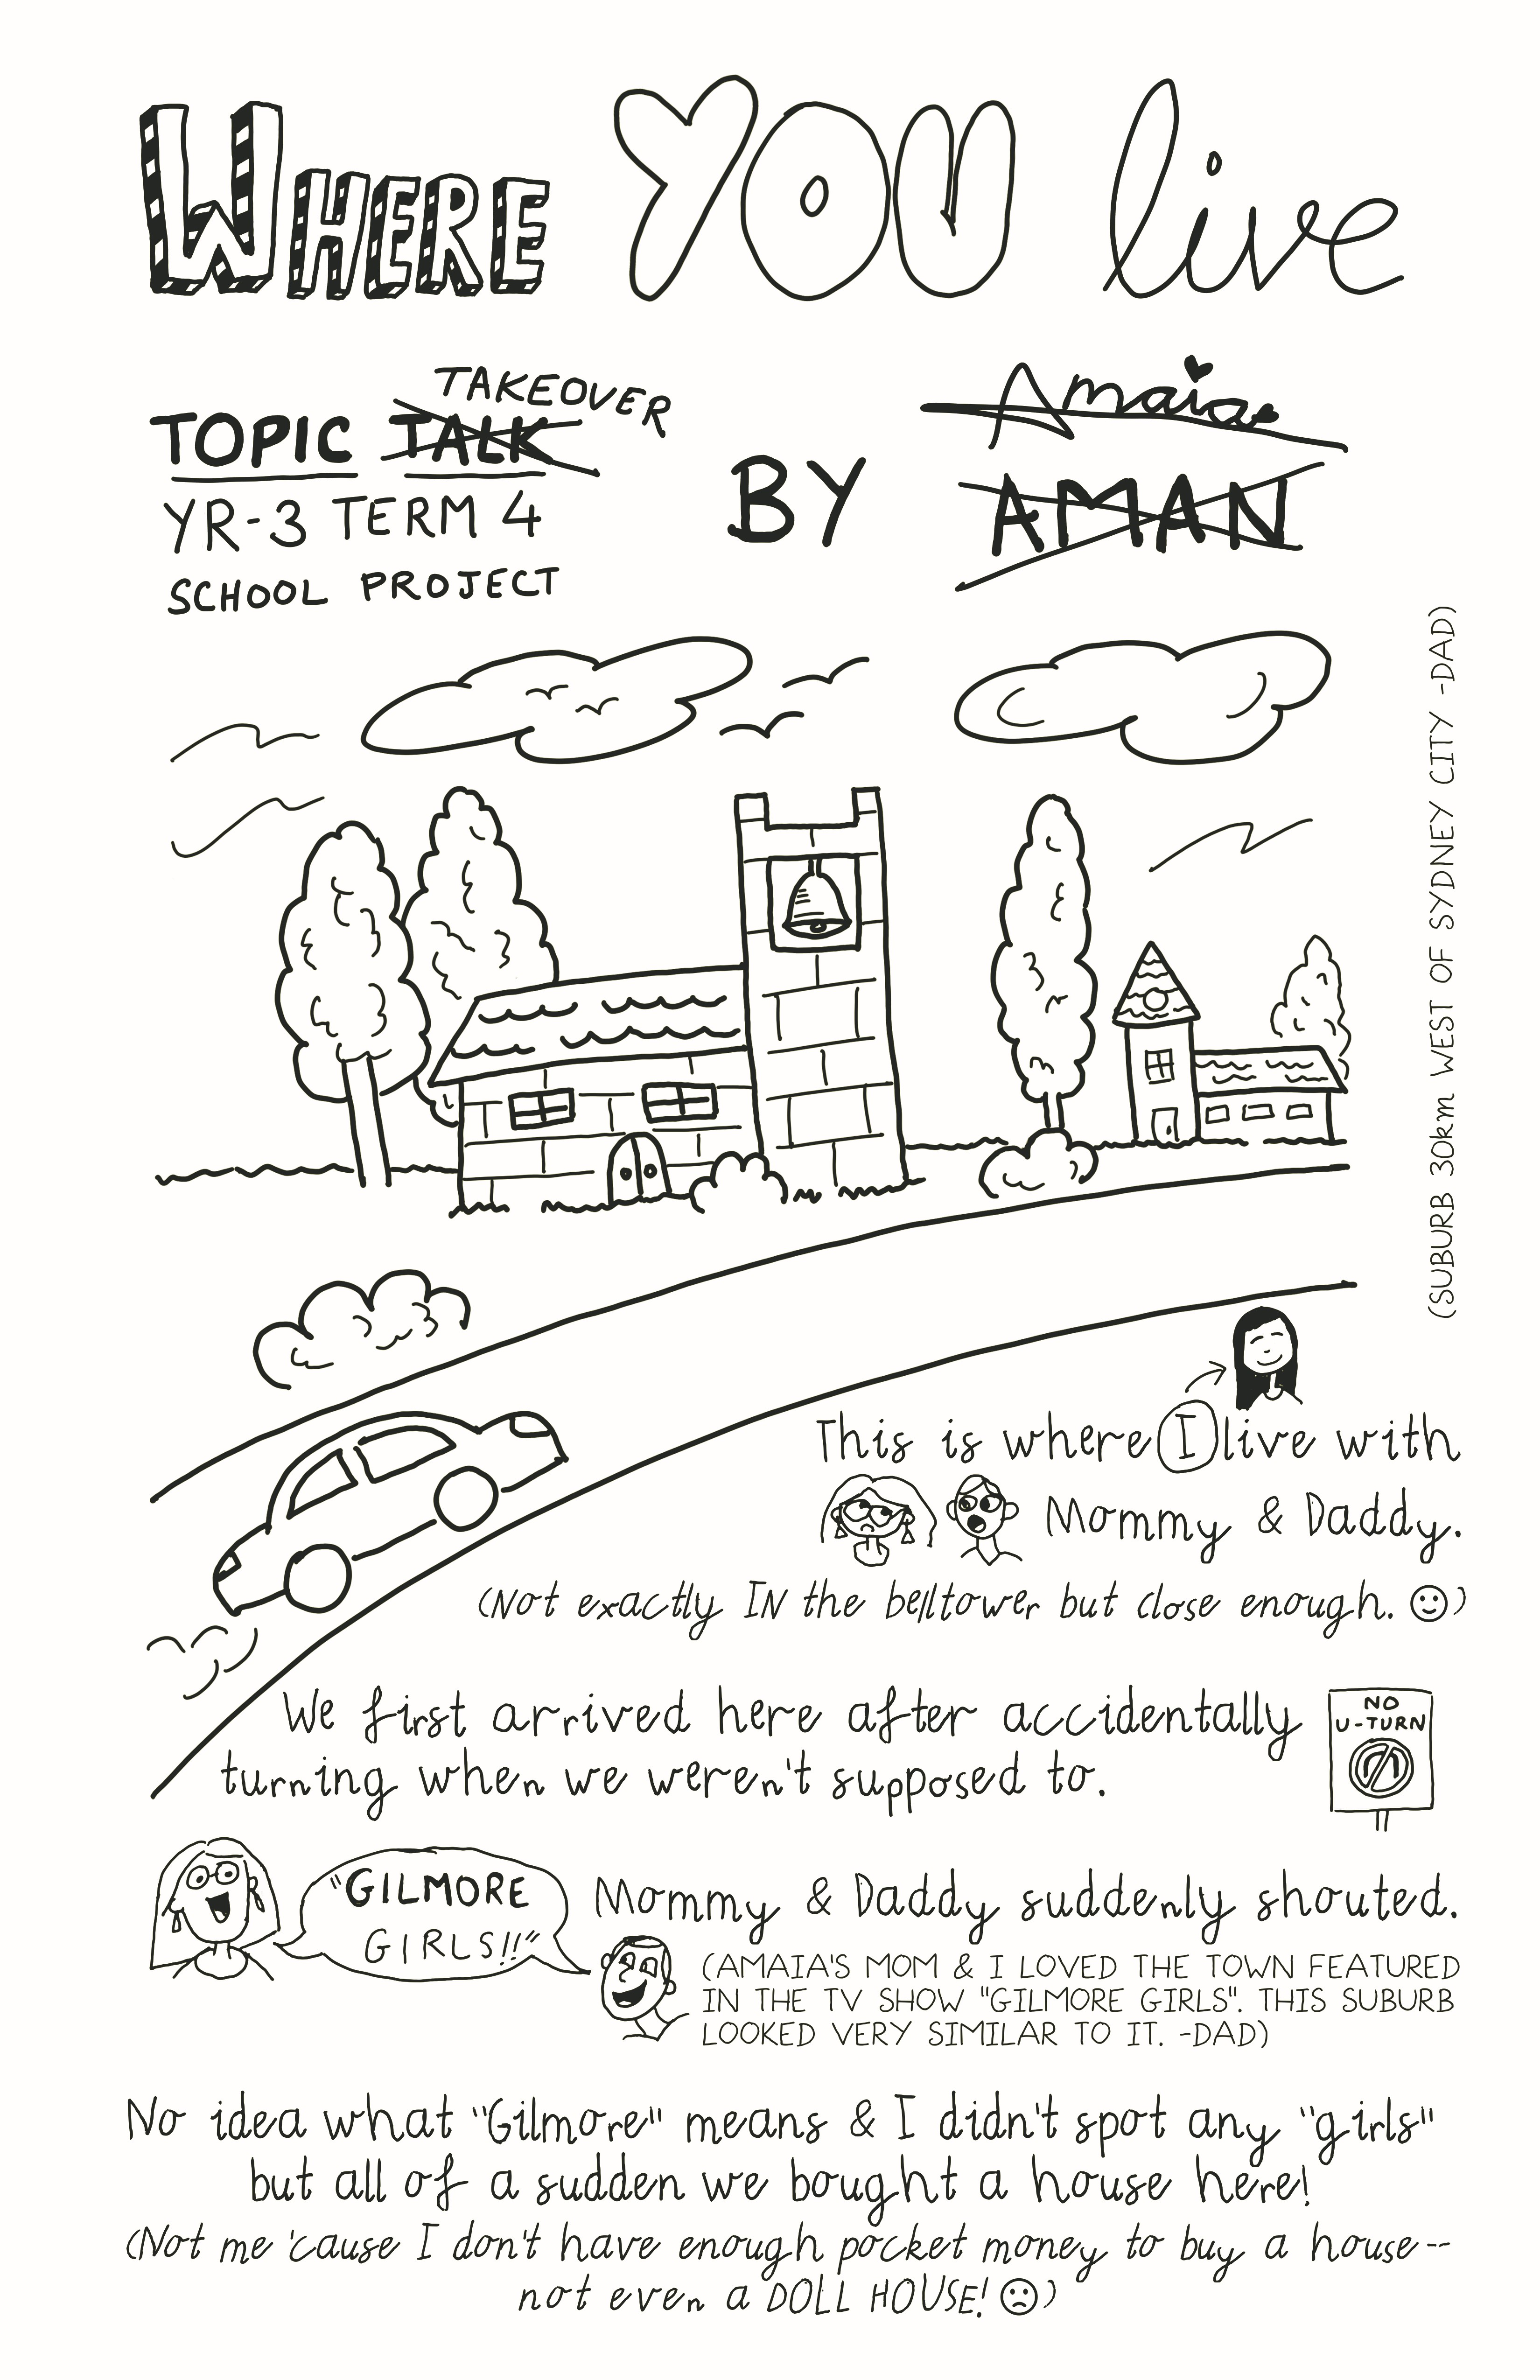 WHERE YOU live
TAKEOVER
TOPIC TALK
YR-3 TERM 4
SCHOOL PROJECT
BY
Amaia
AMAN
(SUBURB 30km WEST OF SYDNEY CITY -DAD)
This is where I live with
Mommy & Daddy.
(Not exactly IN the belltower but close enough. ☺)
We first arrived here after accidentally
turning when we weren't supposed to.
NO
U-TURN
"GILMORE
GIRLS!!"
Mommy & Daddy suddenly shouted.
(AMAIA'S MOM & I LOVED THE TOWN FEATURED
IN THE TV SHOW "GILMORE GIRLS". THIS SUBURB
LOOKED VERY SIMILAR TO IT. -DAD)
No idea what "Gilmore" means & I didn't spot any "girls"
but all of a sudden we bought a house here!
(Not me 'cause I don't have enough pocket money to buy a house--
not even a DOLL HOUSE! ☹)